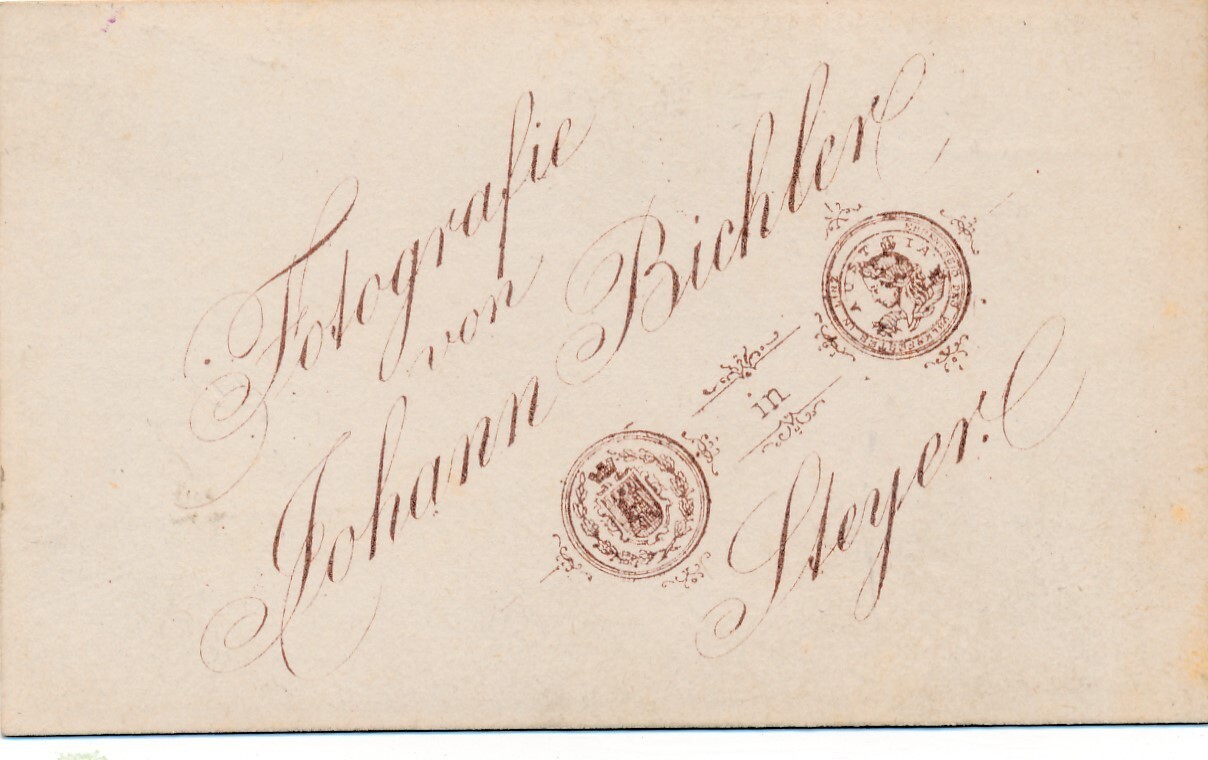 Fotografie
von
Johann Bichler
in
Steyer.
AUSTRIA